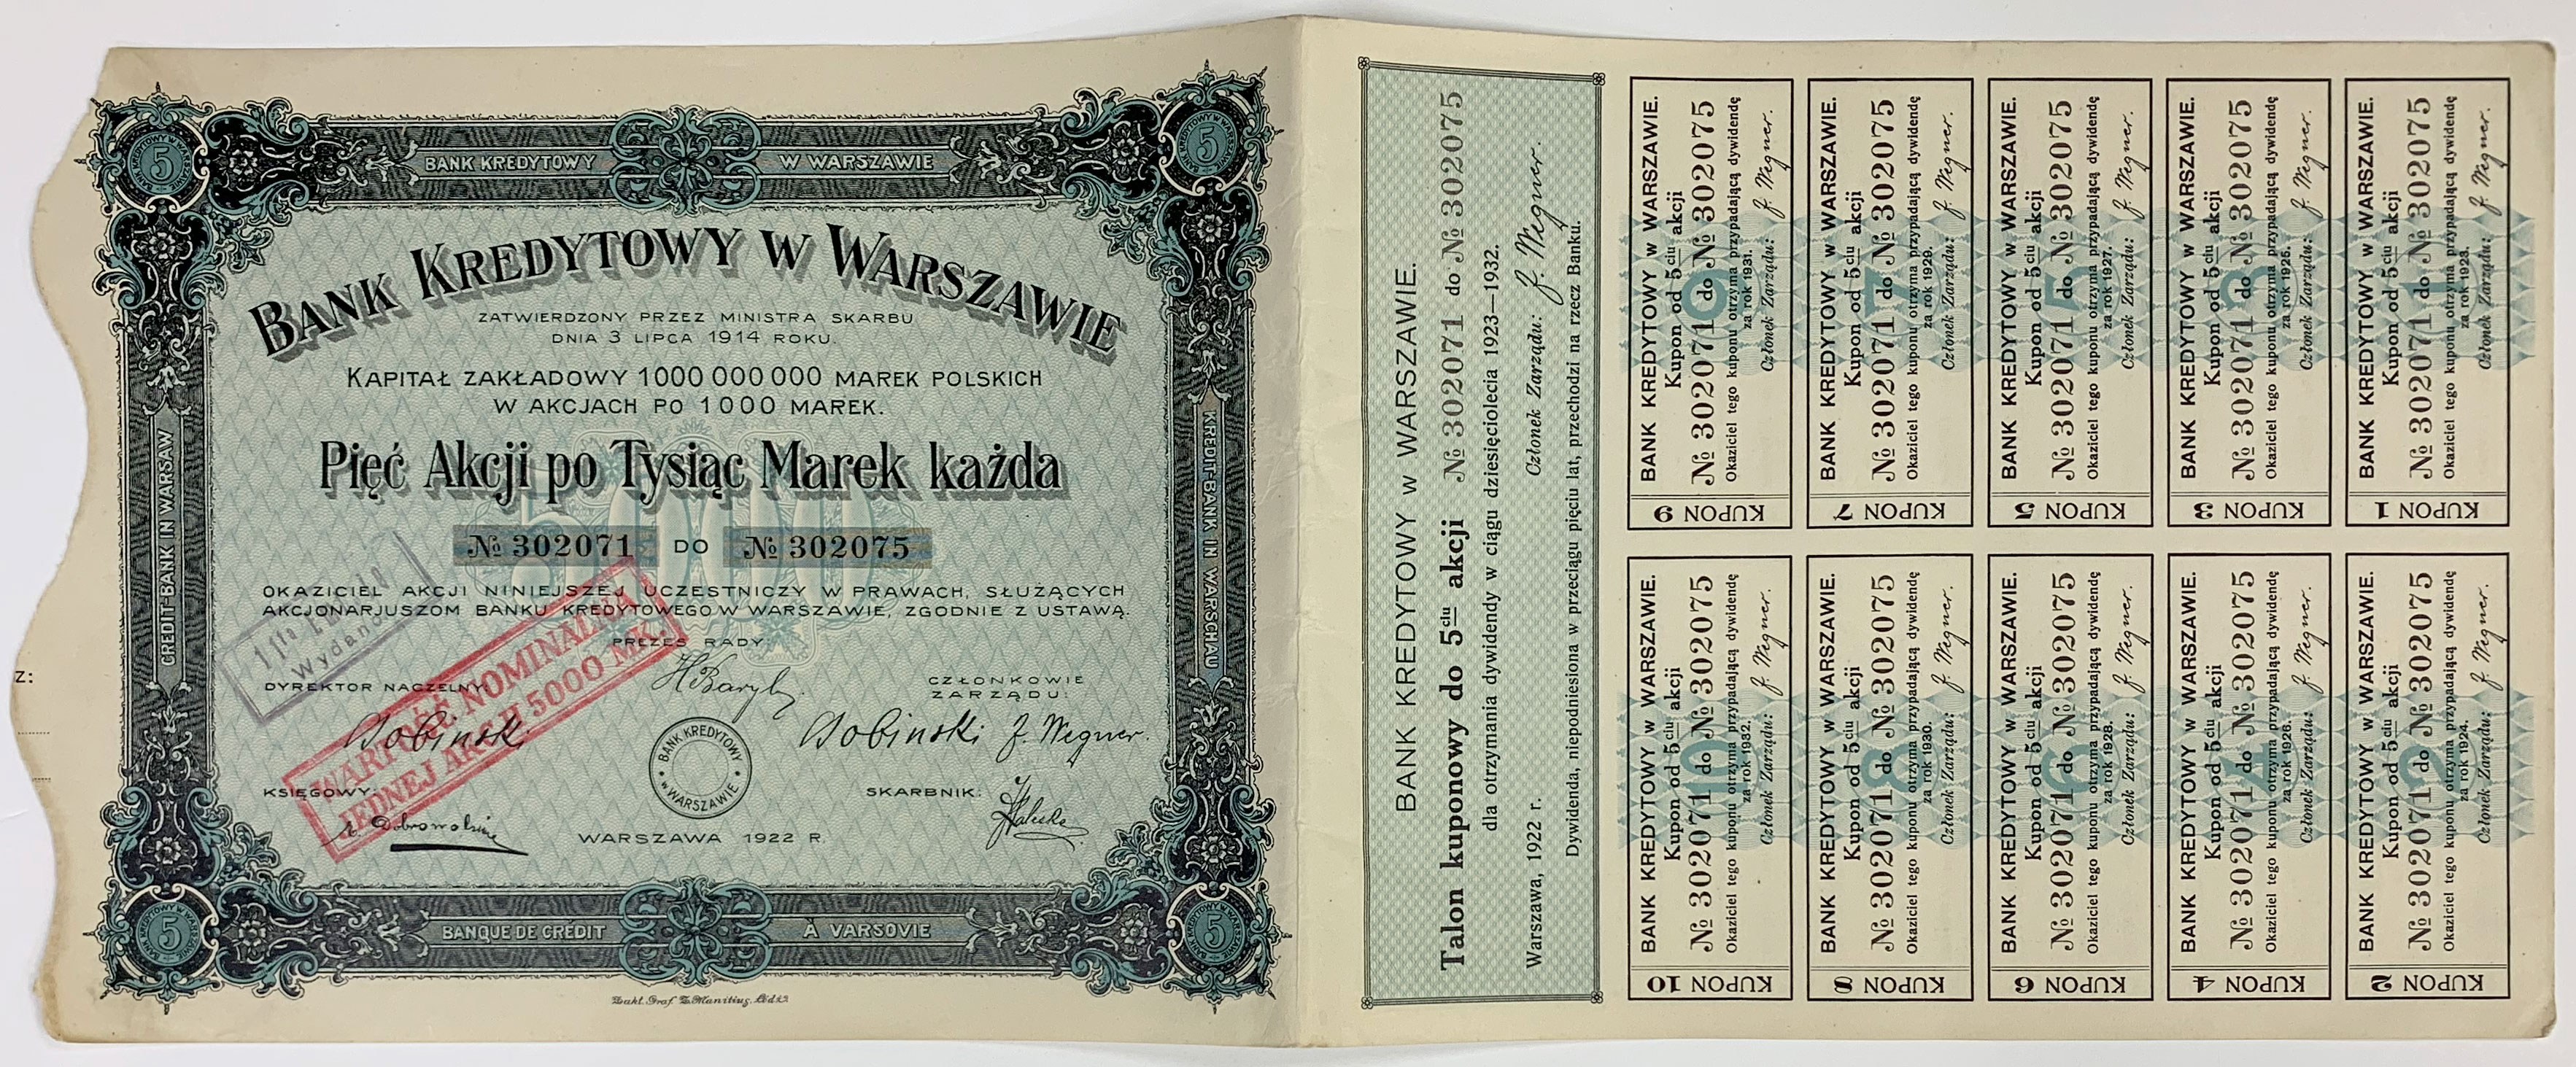 BANK KREDYTOWY W WARSZAWIE
5
BANK KREDYTOWY W WARSZAWIE
5
BANK KREDYTOWY W WARSZAWIE
CREDIT-BANK IN WARSAW
KREDIT-BANK IN WARSCHAU
BANK KREDYTOWY W WARSZAWIE
ZATWIERDZONY PRZEZ MINISTRA SKARBU
DNIA 3 LIPCA 1914 ROKU.
KAPITAŁ ZAKŁADOWY 1000 000 000 MAREK POLSKICH
W AKCJACH PO 1000 MAREK.
Pięć Akcji po Tysiąc Marek każda
5000
№ 302071 DO № 302075
OKAZICIEL AKCJI NINIEJSZEJ UCZESTNICZY W PRAWACH, SŁUŻĄCYCH
AKCJONARJUSZOM BANKU KREDYTOWEGO W WARSZAWIE, ZGODNIE Z USTAWĄ.
Wydano
WARTOŚĆ NOMINALNA
JEDNEJ AKCJI 5000 MK.
PREZES RADY
DYREKTOR NACZELNY:
CZŁONKOWIE
ZARZĄDU:
Bobinski
Bobinski J. Wegner.
BANK KREDYTOWY
W WARSZAWIE
KSIĘGOWY:
SKARBNIK:
WARSZAWA 1922 R.
BANK KREDYTOWY W WARSZAWIE
5
BANQUE DE CRÉDIT À VARSOVIE
BANK KREDYTOWY W WARSZAWIE
5
Zakł. Graf. Manitius, Łódź
Z:
BANK KREDYTOWY W WARSZAWIE.
Talon kuponowy do 5ciu akcji № 302071 do № 302075
dla otrzymania dywidendy w ciągu dziesięciolecia 1923—1932.
Warszawa, 1922 r. Członek Zarządu: J. Wegner.
Dywidenda, niepodniesiona w przeciągu pięciu lat, przechodzi na rzecz Banku.
KUPON 9
9
BANK KREDYTOWY W WARSZAWIE.
Kupon od 5ciu akcji
№ 302071 do № 302075
Okaziciel tego kuponu otrzyma przypadającą dywidendę
za rok 1931.
Członek Zarządu: J. Wegner.
KUPON 7
7
BANK KREDYTOWY W WARSZAWIE.
Kupon od 5ciu akcji
№ 302071 do № 302075
Okaziciel tego kuponu otrzyma przypadającą dywidendę
za rok 1929.
Członek Zarządu: J. Wegner.
KUPON 5
5
BANK KREDYTOWY W WARSZAWIE.
Kupon od 5ciu akcji
№ 302071 do № 302075
Okaziciel tego kuponu otrzyma przypadającą dywidendę
za rok 1927.
Członek Zarządu: J. Wegner.
KUPON 3
3
BANK KREDYTOWY W WARSZAWIE.
Kupon od 5ciu akcji
№ 302071 do № 302075
Okaziciel tego kuponu otrzyma przypadającą dywidendę
za rok 1925.
Członek Zarządu: J. Wegner.
KUPON 1
1
BANK KREDYTOWY W WARSZAWIE.
Kupon od 5ciu akcji
№ 302071 do № 302075
Okaziciel tego kuponu otrzyma przypadającą dywidendę
za rok 1923.
Członek Zarządu: J. Wegner.
KUPON 10
10
BANK KREDYTOWY W WARSZAWIE.
Kupon od 5ciu akcji
№ 302071 do № 302075
Okaziciel tego kuponu otrzyma przypadającą dywidendę
za rok 1932.
Członek Zarządu: J. Wegner.
KUPON 8
8
BANK KREDYTOWY W WARSZAWIE.
Kupon od 5ciu akcji
№ 302071 do № 302075
Okaziciel tego kuponu otrzyma przypadającą dywidendę
za rok 1930.
Członek Zarządu: J. Wegner.
KUPON 6
6
BANK KREDYTOWY W WARSZAWIE.
Kupon od 5ciu akcji
№ 302071 do № 302075
Okaziciel tego kuponu otrzyma przypadającą dywidendę
za rok 1928.
Członek Zarządu: J. Wegner.
KUPON 4
4
BANK KREDYTOWY W WARSZAWIE.
Kupon od 5ciu akcji
№ 302071 do № 302075
Okaziciel tego kuponu otrzyma przypadającą dywidendę
za rok 1926.
Członek Zarządu: J. Wegner.
KUPON 2
2
BANK KREDYTOWY W WARSZAWIE.
Kupon od 5ciu akcji
№ 302071 do № 302075
Okaziciel tego kuponu otrzyma przypadającą dywidendę
za rok 1924.
Członek Zarządu: J. Wegner.